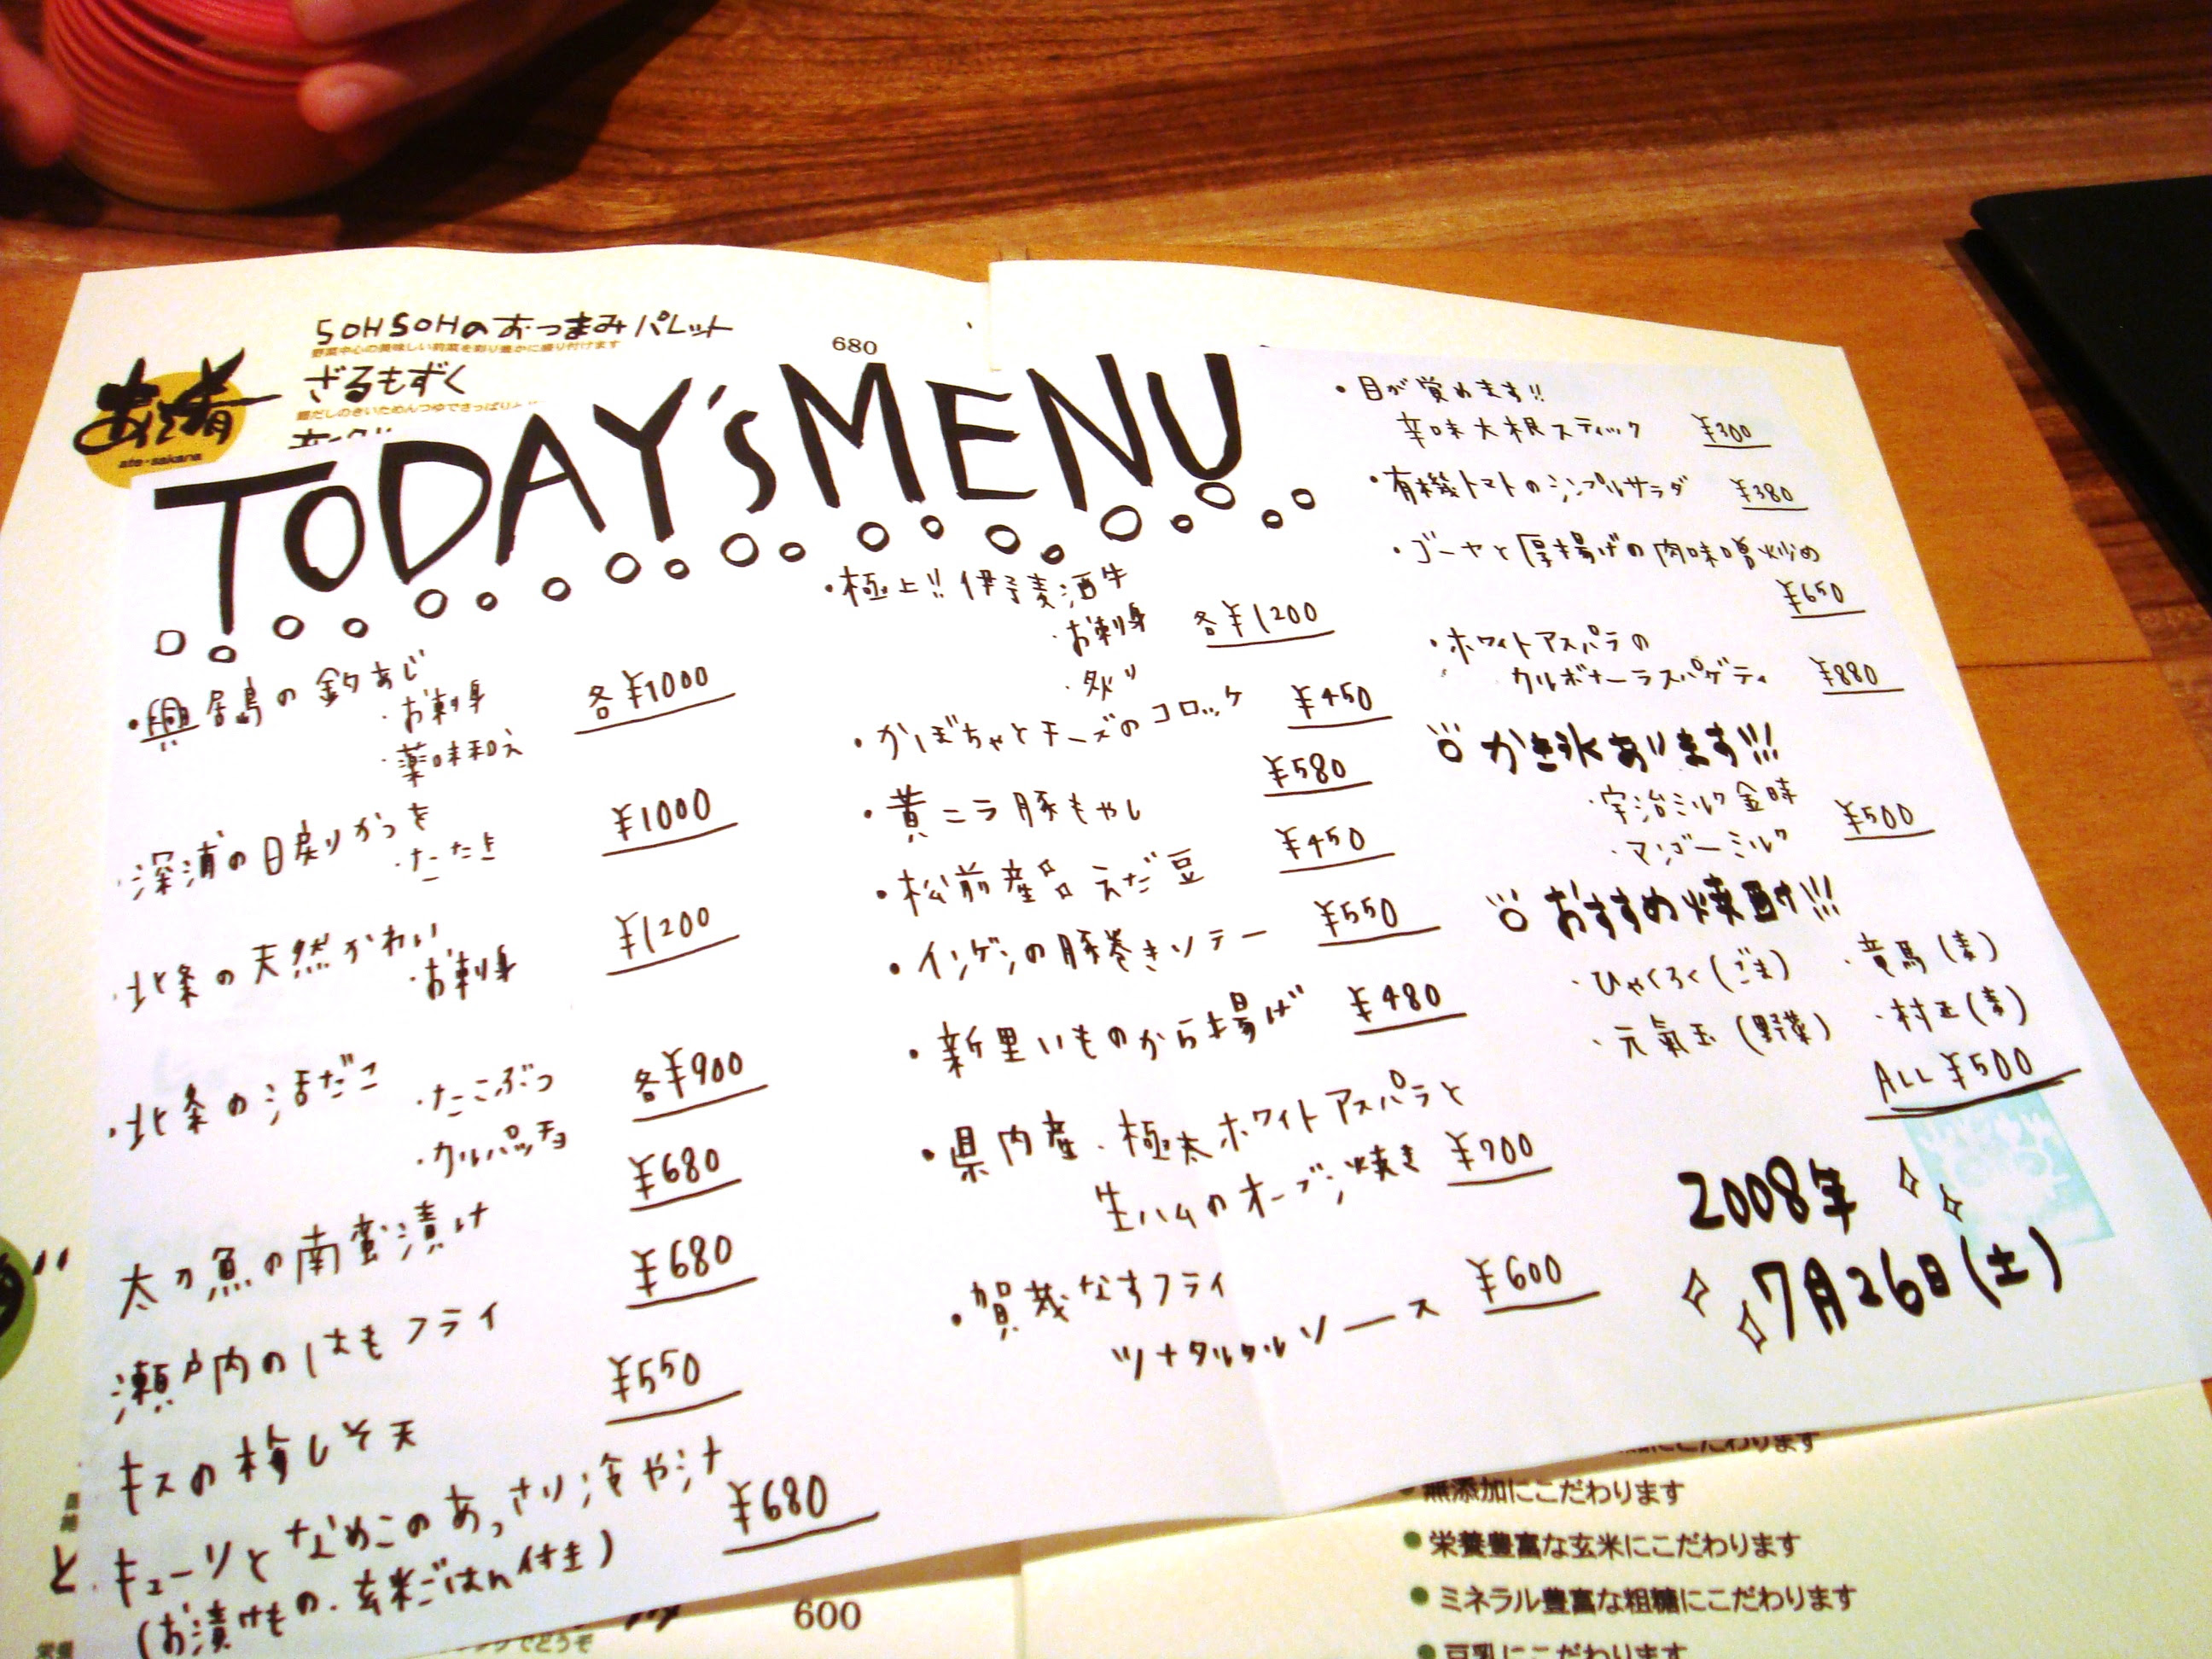 SOHSOHのおつまみパレット
野菜中心の美味しい前菜を彩り豊かに盛り付けます
680
あて肴
ate-sakana
ざるもずく
TODAY'S MENU
・興居島の釣あじ
・お刺身
・薬味和え
各¥1000
・深浦の日戻りかつを
・たたき
¥1000
・北条の天然かわい
・お刺身
¥1200
・北条の活だこ
・たこぶつ
・カルパッチョ
各¥900
太刀魚の南蛮漬け
¥680
瀬戸内のはもフライ
¥680
キスの梅しそ天
¥550
キューリとなめこのあっさり冷や汁
(お漬けもの、玄米ごはん付き)
¥680
・極上!!伊予麦酒牛
・お刺身
・炙り
各¥1200
・かぼちゃとチーズのコロッケ
¥450
・黄ニラ豚もやし
¥580
・松前産 えだ豆
¥450
・インゲンの豚巻きソテー
¥550
・新里いものから揚げ
¥480
・県内産、極太ホワイトアスパラと
生ハムのオーブン焼き
¥700
・賀茂なすフライ
ツナタルタルソース
¥600
・目が覚めます!!
辛味大根スティック
¥300
・有機トマトのシンプルサラダ
¥380
・ゴーヤと厚揚げの肉味噌炒め
¥650
・ホワイトアスパラの
カルボナーラスパゲティ
¥880
かき氷あります!!!
・宇治ミルク金時
・マンゴーミルク
¥500
おすすめ焼酎!!!
・ひゃくろく(ごま)
・竜馬(麦)
・元氣玉(野菜)
・村正(麦)
ALL ¥500
2008年
7月26日(土)
600
無添加にこだわります
●栄養豊富な玄米にこだわります
●ミネラル豊富な粗糖にこだわります
●豆乳にこだわります